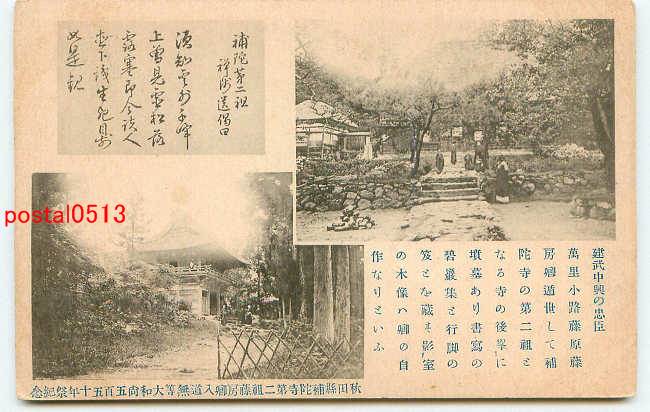 補陀第二祖
禅師送偈曰
須知雲外千峰
上曽見霊松落
露寒即今誤人
如是観
建武中興の忠臣
萬里小路藤原藤
房卿遁世して補
陀寺の第二祖と
なる寺の後峯に
墳墓あり書寫の
碧巖集と行脚の
笈とを藏す影室
の木像ハ卿の自
作なりといふ
秋田縣補陀寺第二祖藤房卿入道無等大和尚五百五十年祭紀念
postal0513